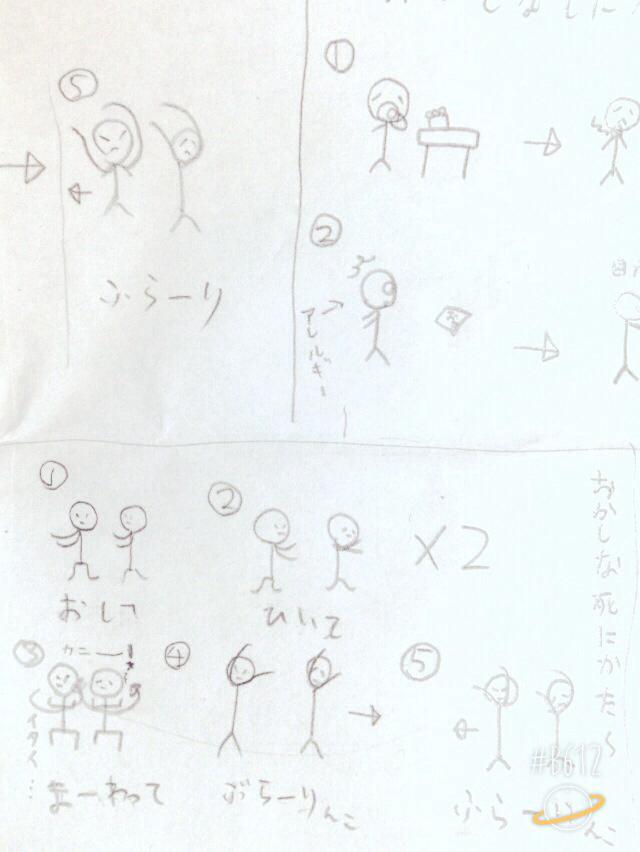 ⑤
ぶらーり
①
②
アレルギー
おかしな死にかた
①
おし
②
ひいて
×2
③
カニー!
イタイ…
まーわって
④
ぶらーりんこ
⑤
ぶらーりんこ
#B612